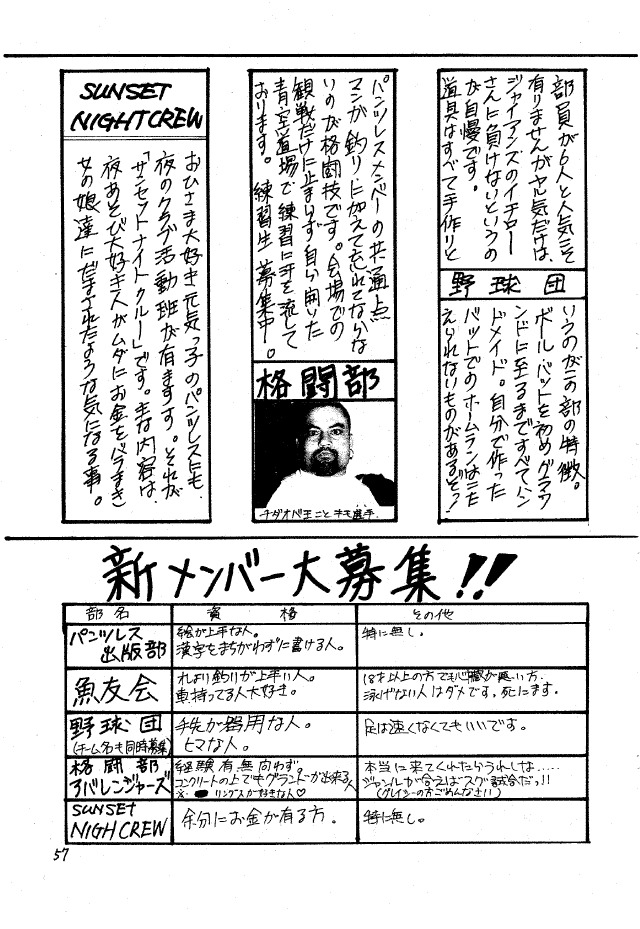 部員が6人と人気こそ
有りませんがヤル気だけは、
ジャイアンズのイチロー
さんに負けないというの
が自慢です。
道具はすべて手作りと
野球団
いうのがこの部の特徴。
ボール、バットを初めグラウ
ンドに至るまですべてハン
ドメイド。自分で作った
バットでのホームランはこた
えられないものがあるぞっ!
パンツレスメンバーの共通点
マンガ、釣り、に加えて忘れてならな
いのが格闘技です。会場での
観戦だけに止まらず自ら開いた
青空道場で練習に汗を流して
おります。練習生募集中。
格闘部
チダオベ王ことキモ選手.
SUNSET
NIGHTCREW
おひさま大好き元気っ子のパンツレスにも
夜のクラブ活動班が有ます。それが
「サンセットナイトクルー」です。主な内容は、
夜あそび大好き人がムダにお金をバラまき
女の娘達にだまされたような気になる事。
新メンバー大募集!!
部名 資格 その他
パンツレス
出版部
絵が上手な人。
漢字をまちがわずに書ける人。
特に無し。
魚友会
れより釣りが上手い人。
車持ってる人大好き。
18才以上の方でも心臓が悪い方.
泳げない人はダメです。死にます。
野球団
(チーム名も同時募集)
手先が器用な人。
ヒマな人。
足は速くなくてもいいです。
格闘部
アバレンジャーズ
経験有無問わず。
コンクリートの上でもグランドが出来る人
※ リングスが好きな人♡
本当に来てくれたらうれしな.....
ジャンルが合えばスグ試合だっ!!
(グレイシーの方ごめんなさい)
SUNSET
NIGHCREW
余分にお金が有る方。
特に無し。
57